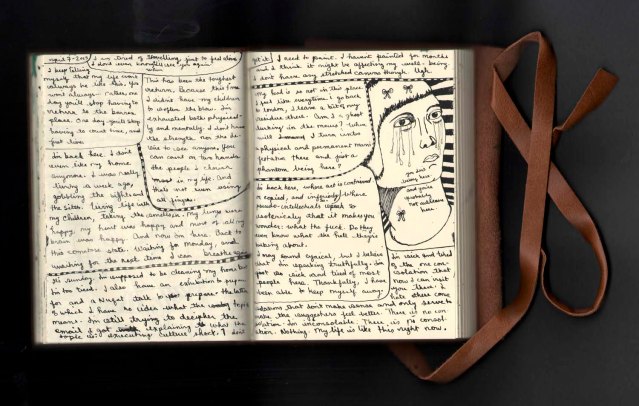 april 7 - 2013 I am tired of travelling just to feel alive
I don't even know I'll see you again
I keep telling
myself that my life won't
always be like this. You
won't always. Rather, one
day you'll stop having to
return to the banana
place. One day you'll stop
having to count time, and
just live.
This has been the toughest
return. Because this time
I didn't have my children
to soften the blow. I'm
exhausted both physical-
ly and mentally. I don't have
the strength nor the de-
sire to see anyone. You
can count on two hands
the people I cherish
most in my life. And
that's not even using
all fingers.
I'm back here. I don't
even like my home
anymore. I was really
living a week ago,
gobbling the different
the sites. Living life with
my children, taking the
happy, my heart was happy and most of all my
brain was happy. And now I'm here. Back to
this comatose state. Waiting for Monday, and
waiting for the next time I can breathe
It's sunday. I'm supposed to be cleaning my home but
I'm too tired. I also have an exhibition to prepare
for and a talk to prepare, the latter
of which I have no idea what the topic
means. I'm still trying to decipher the
email I got explaining what the
topic is: executing culture shock. I don't
get it. I need to paint. I haven't painted for months
and I think it might be affecting my well-being
I don't have any stretched canvas though. Ugh.
my soul is so not in this place
I feel like everytime I go back
to London, I leave a bit of my
residue there. Am I a ghost
lurking in the mews? When
will I turn into
a physical and permanent mani
festation there and just a
phantom being here?
I'm back here, where art is contrived
or copied, and insipid. Where
pseudo-intellectuals speak so
esoterically that it makes you
wonder: what the fuck. Do they
even know what the hell they're
talking about.
I may sound cynical, but I believe
that I'm speaking truthfully. I'm
just sick and tired of most
people here. Thankfully, I have
been able to keep myself away.
you are
being here
and you're
probably
not welcome
here.
I'm sick and tired
of the one con-
solation that
now I can visit
you then. I
hate these con-
solations that don't make sense and only serve to
make the suggesters feel better. There is no con-
solation. I'm inconsolable. There is no consol-
ation. Nothing. My life is like this right now.